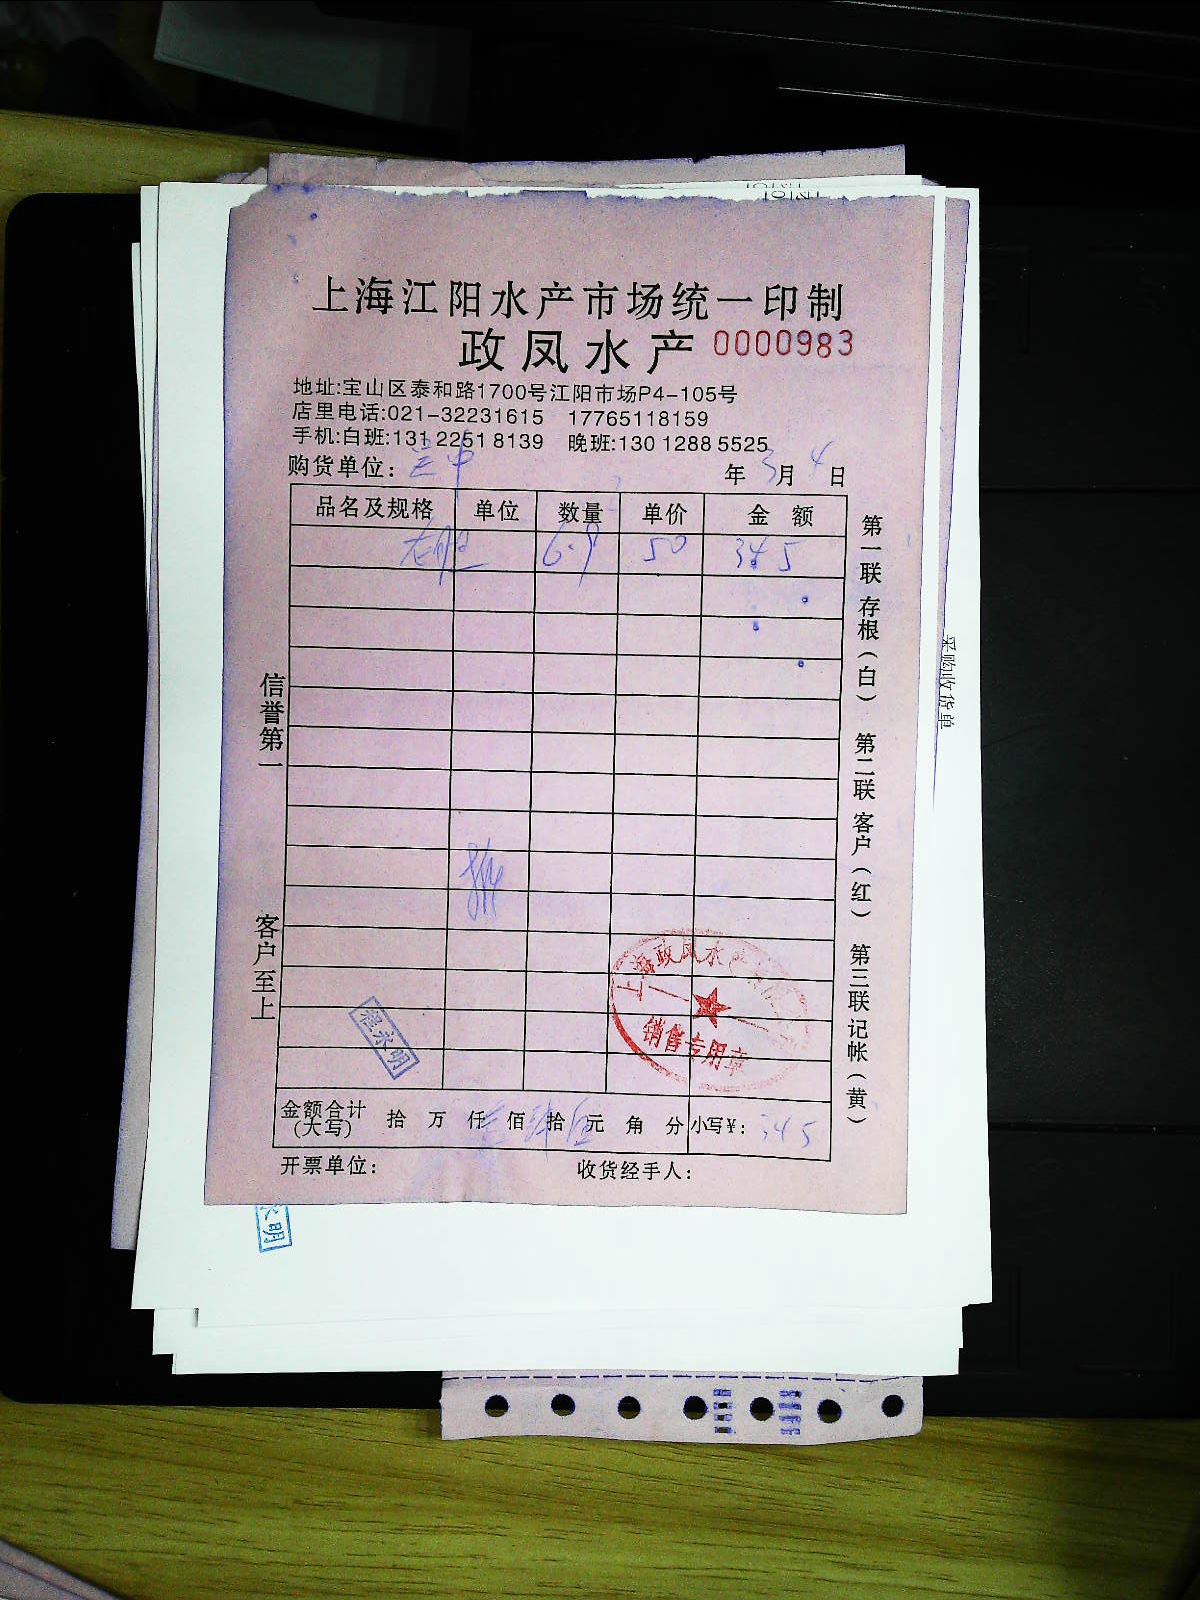 上海江阳水产市场统一印制
政凤水产 0000983
地址:宝山区泰和路1700号江阳市场P4-105号
店里电话:021-32231615 17765118159
手机:白班:131 2251 8139 晚班:130 1288 5525
购货单位: 年 3月 4日
品名及规格 单位 数量 单价 金额
6.9 50 345
上海政凤水产
销售专用章
永明
金额合计(大写) 拾 万 仟 佰 拾 元 角 分 小写¥: 345
开票单位: 收货经手人:
信誉第一 客户至上
第一联 存根(白) 第二联 客户(红) 第三联 记帐(黄)
采购收货单
明